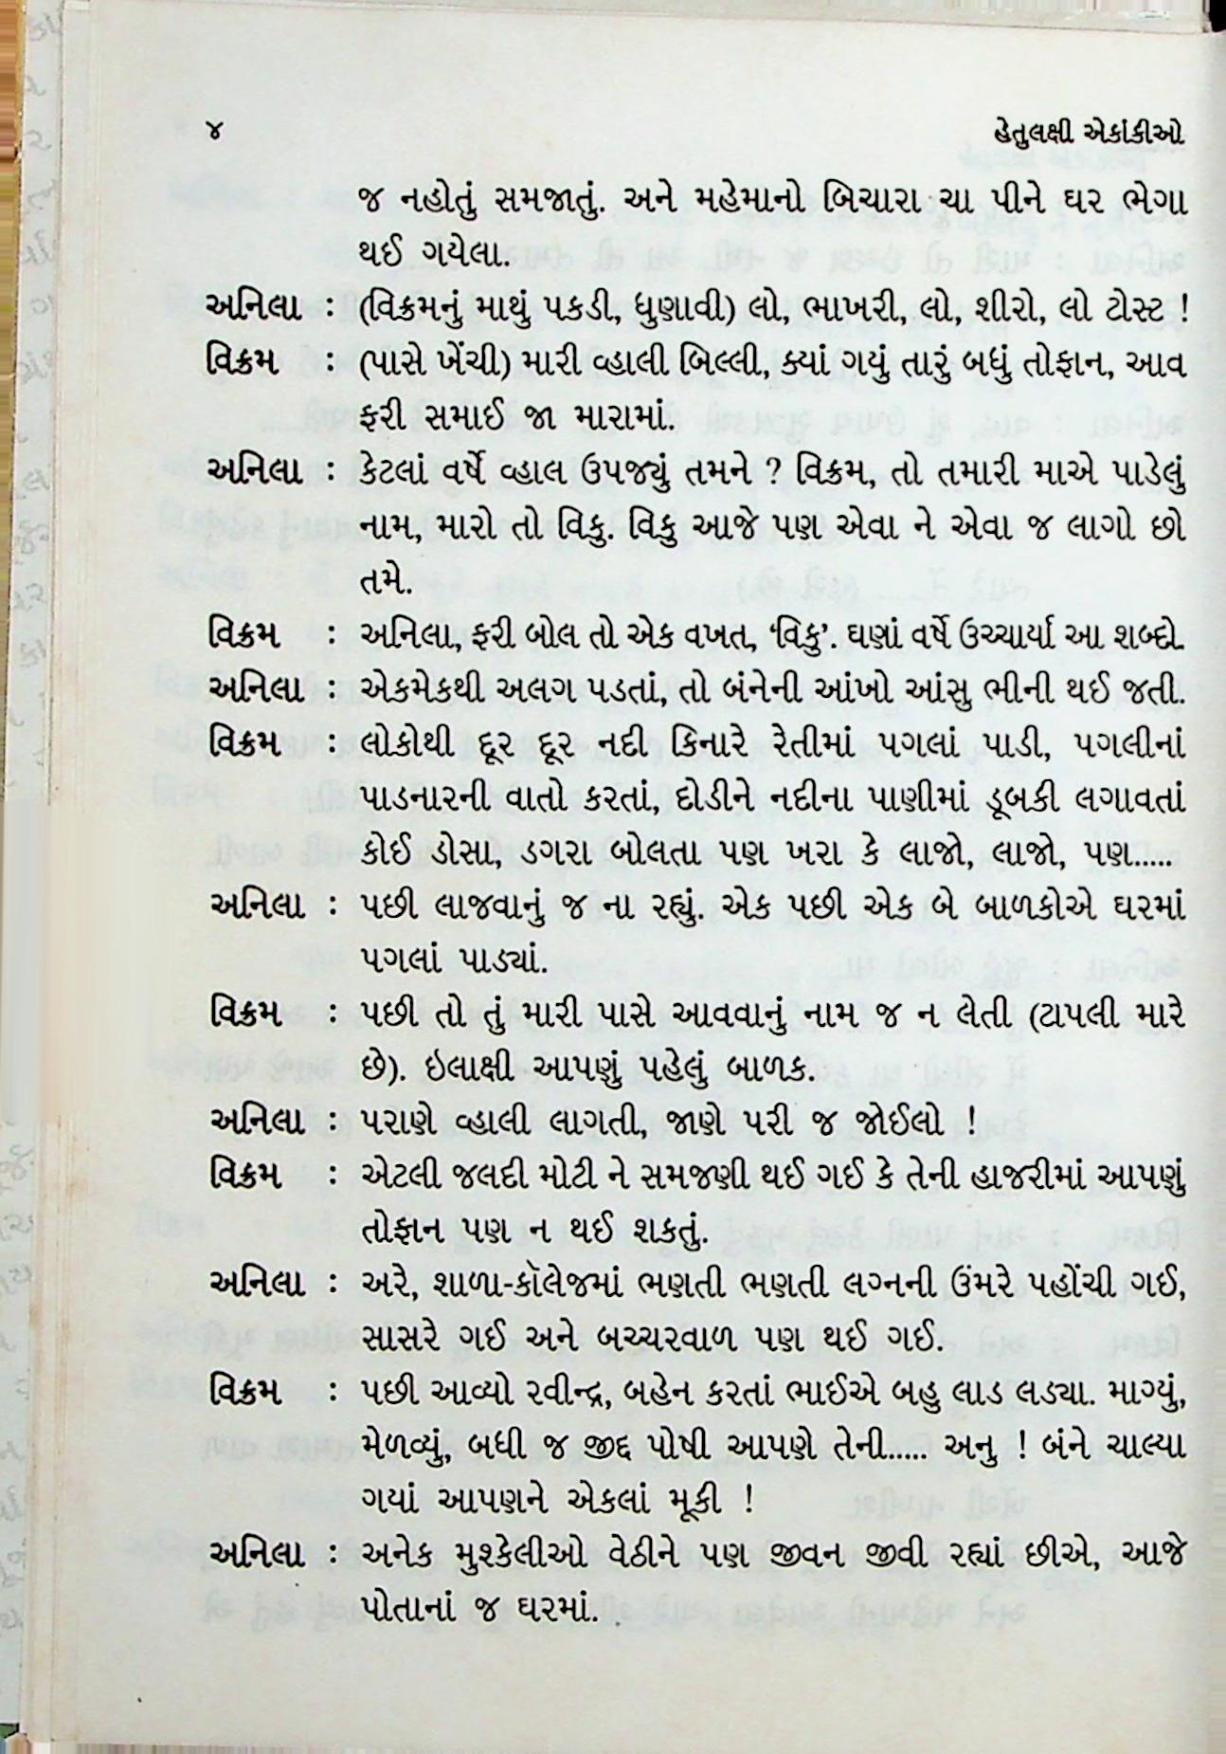 ૪ હેતુલક્ષી એકાંકીઓ
જ નહોતું સમજાતું. અને મહેમાનો બિચારા ચા પીને ઘર ભેગા
થઈ ગયેલા.
અનિલા : (વિક્રમનું માથું પકડી, ધુણાવી) લો, ભાખરી, લો, શીરો, લો ટોસ્ટ !
વિક્રમ : (પાસે ખેંચી) મારી વ્હાલી બિલ્લી, ક્યાં ગયું તારું બધું તોફાન, આવ
ફરી સમાઈ જા મારામાં.
અનિલા : કેટલાં વર્ષે વ્હાલ ઉપજ્યું તમને ? વિક્રમ, તો તમારી માએ પાડેલું
નામ, મારો તો વિકુ. વિકુ આજે પણ એવા ને એવા જ લાગો છો
તમે.
વિક્રમ : અનિલા, ફરી બોલ તો એક વખત, ‘વિકુ’. ઘણાં વર્ષે ઉચ્ચાર્યા આ શબ્દો.
અનિલા : એકમેકથી અલગ પડતાં, તો બંનેની આંખો આંસુ ભીની થઈ જતી.
વિક્રમ : લોકોથી દૂર દૂર નદી કિનારે રેતીમાં પગલાં પાડી, પગલીનાં
પાડનારની વાતો કરતાં, દોડીને નદીના પાણીમાં ડૂબકી લગાવતાં
કોઈ ડોસા, ડગરા બોલતા પણ ખરા કે લાજો, લાજો, પણ.....
અનિલા : પછી લાજવાનું જ ના રહ્યું. એક પછી એક બે બાળકોએ ઘરમાં
પગલાં પાડ્યાં.
વિક્રમ : પછી તો તું મારી પાસે આવવાનું નામ જ ન લેતી (ટાપલી મારે
છે). ઇલાક્ષી આપણું પહેલું બાળક.
અનિલા : પરાણે વ્હાલી લાગતી, જાણે પરી જ જોઈલો !
વિક્રમ : એટલી જલદી મોટી ને સમજણી થઈ ગઈ કે તેની હાજરીમાં આપણું
તોફાન પણ ન થઈ શકતું.
અનિલા : અરે, શાળા-કૉલેજમાં ભણતી ભણતી લગ્નની ઉંમરે પહોંચી ગઈ,
સાસરે ગઈ અને બચ્ચરવાળ પણ થઈ ગઈ.
વિક્રમ : પછી આવ્યો રવીન્દ્ર, બહેન કરતાં ભાઈએ બહુ લાડ લડ્યા. માગ્યું,
મેળવ્યું, બધી જ જીદ્દ પોષી આપણે તેની..... અનુ ! બંને ચાલ્યા
ગયાં આપણને એકલાં મૂકી !
અનિલા : અનેક મુશ્કેલીઓ વેઠીને પણ જીવન જીવી રહ્યાં છીએ, આજે
પોતાનાં જ ઘરમાં.